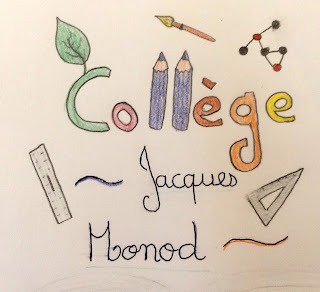 Collège
Jacques
Monod